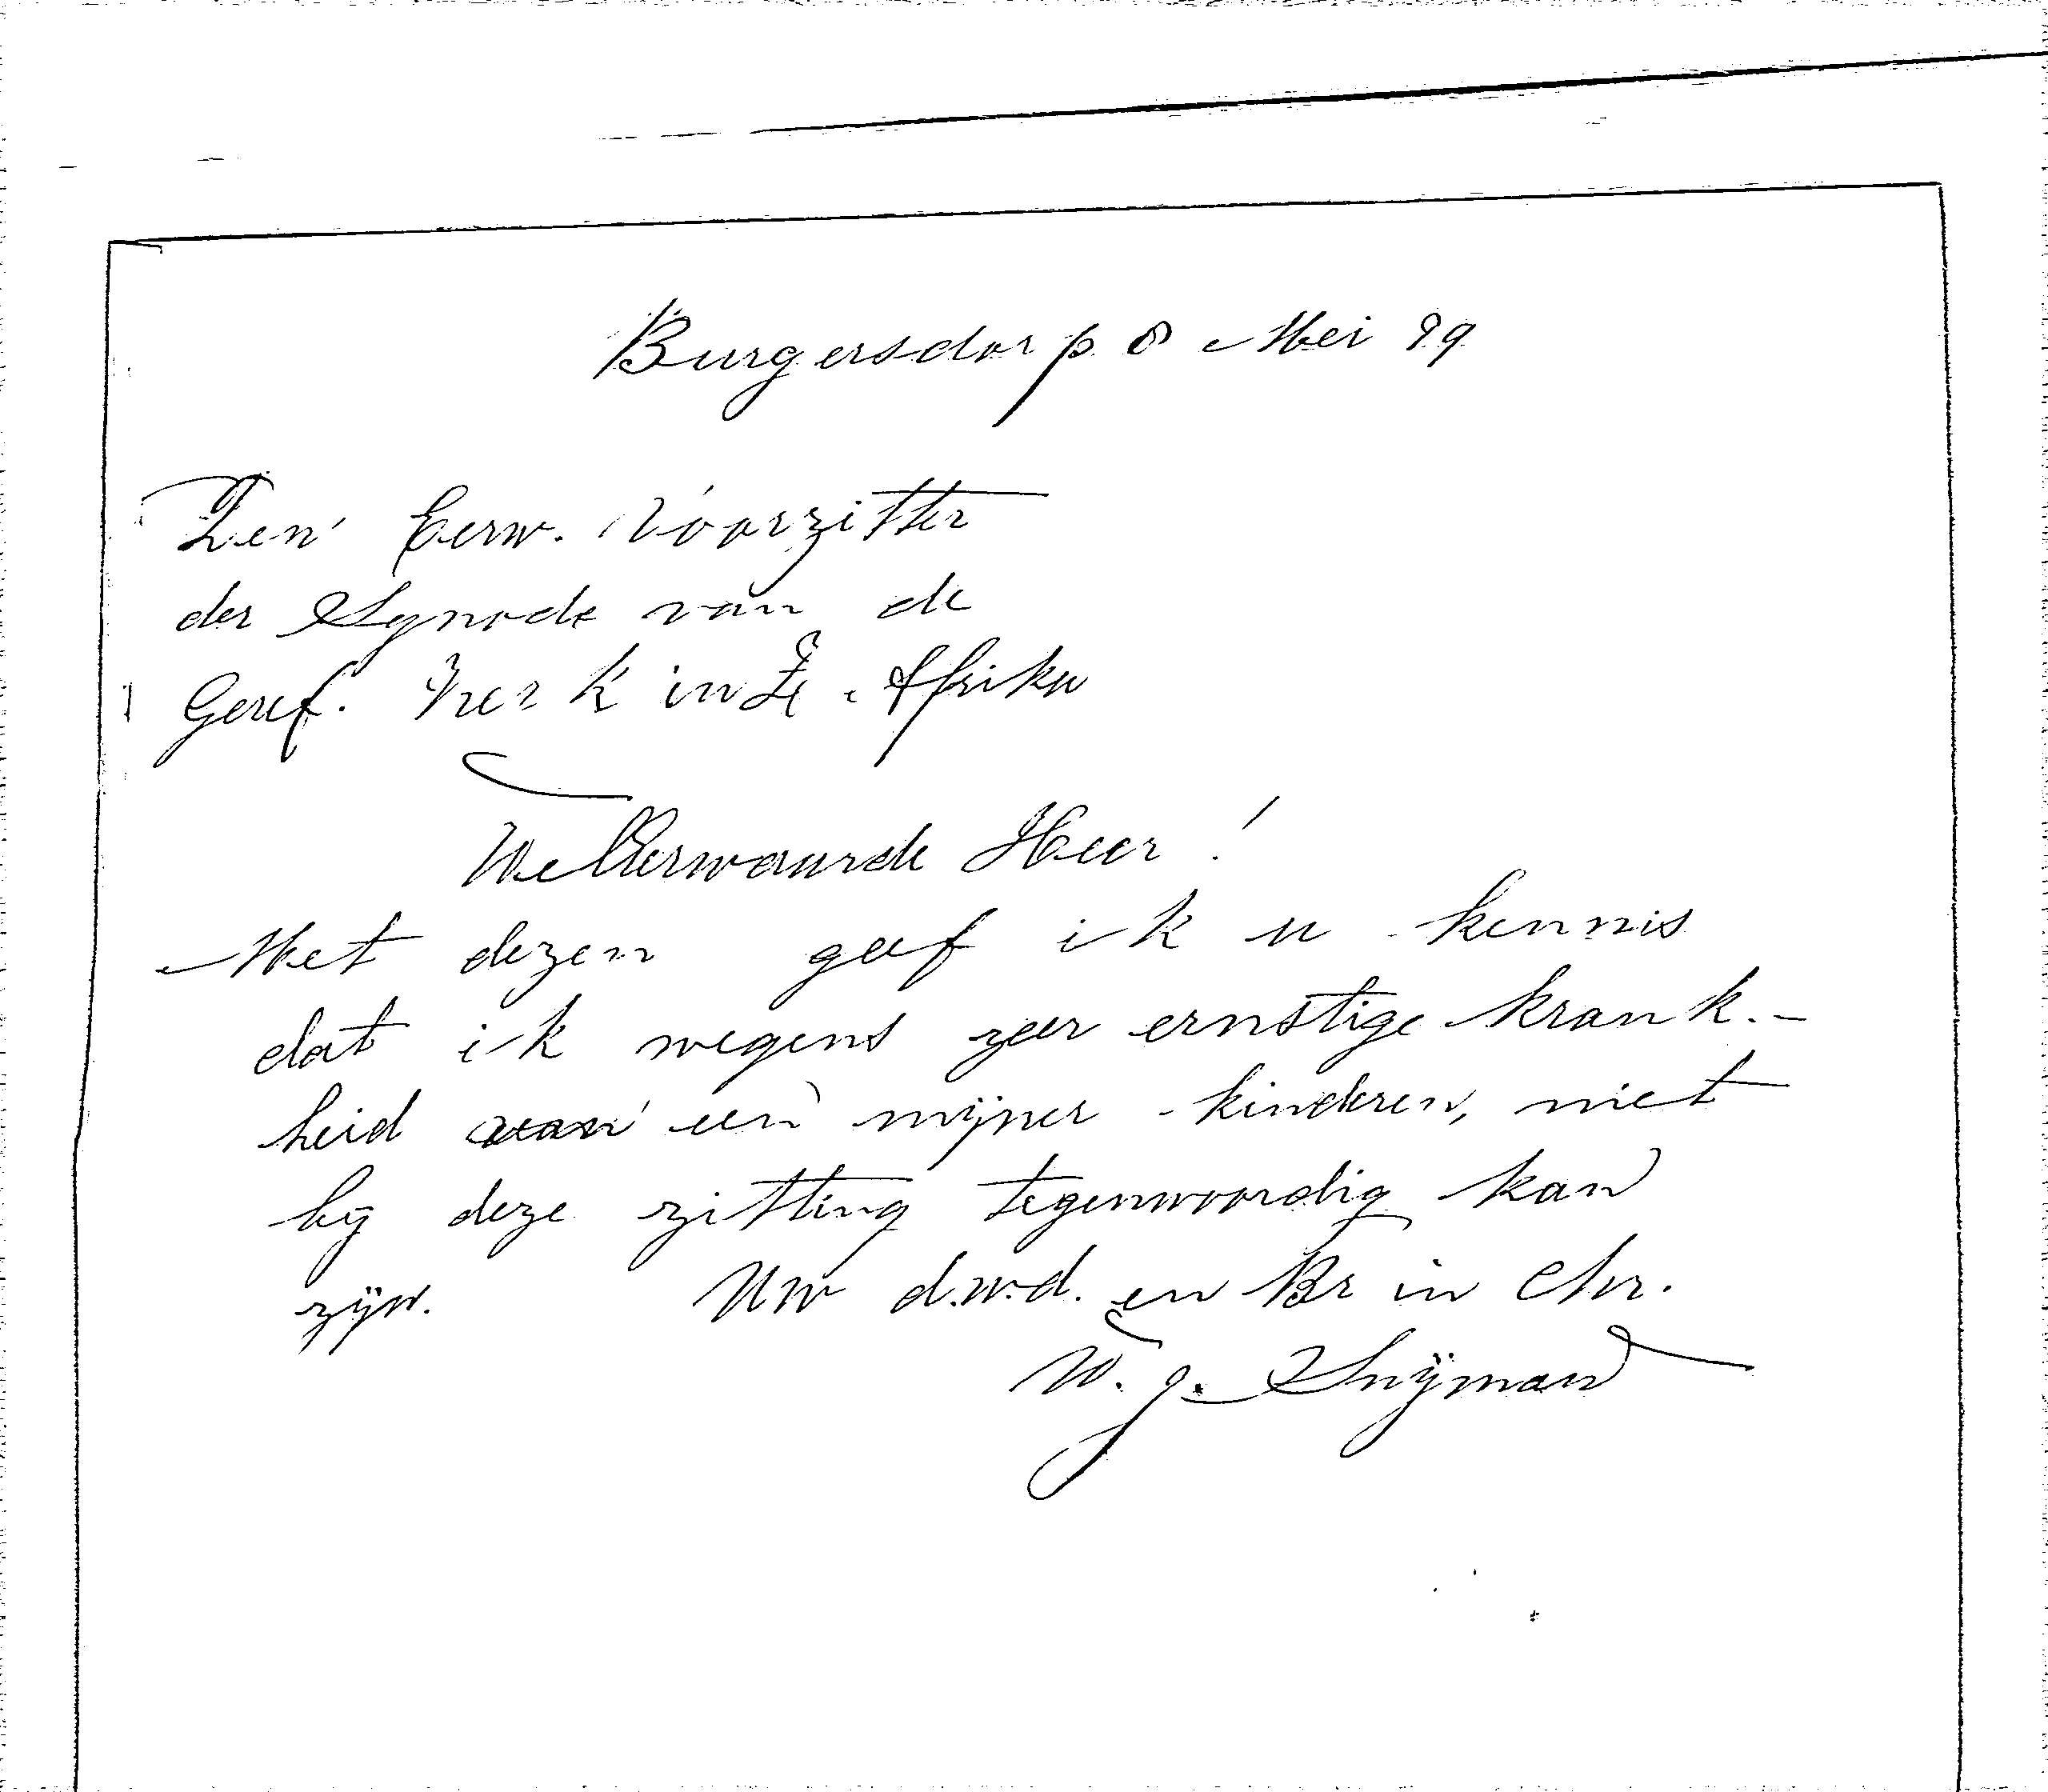 Burgersdorp 8 Mei 99
Den Eerw. Voorzitter
der Synode van de
Geref. Kerk in Z. Afrika
WelEerwaarde Heer!
Met dezen geef ik u kennis
dat ik wegens zeer ernstige krank-
heid van een mijner kinderen, niet
bij deze zitting tegenwoordig kan
zijn. Uw d.w.d. en Br in Chr.
W. J. Snijman